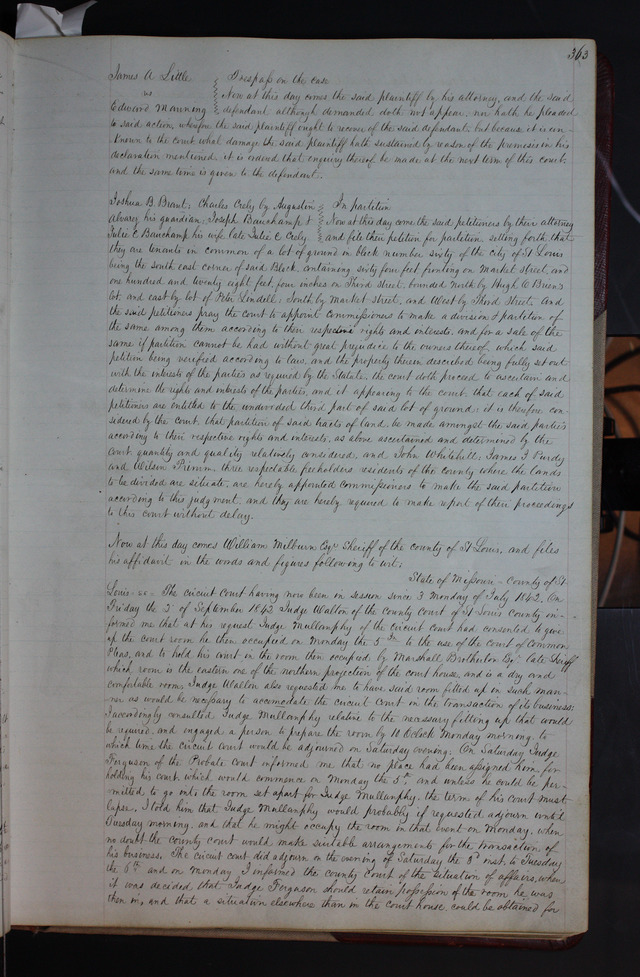 363
James A Little } Trespass on the case
vs } Now at this day comes the said plaintiff by his attorney, and the said
Edward Manning } defendant although demanded doth not appear, nor hath he pleaded
to said action, wherefore the said plaintiff ought to recover of the said defendant, but because it is un
known to the court what damage the said plaintiff hath sustained by reason of the premises in his
declaration mentioned, it is ordered that enquiry thereof be made at the next term of this court,
and the same time is given to the defendant.
Joshua B. Brant, Charles Crely by Augustin } In partition
Alvarez his guardian, Joseph Beauchamp & } Now at this day come the said petitioners by their attorney
Julie C Beauchamp his wife late Julie C Crely } and file their petition for partition setting forth that
they are tenants in common of a lot of ground in block number sixty of the city of St Louis
being the south east corner of said Block, containing sixty four feet fronting on Market street, and
one hundred and twenty eight feet, four inches on Third street, bounded North by Hugh O'Brien's
lot, and east by lot of Peter Lindell, South by Market street, and West by Third Street, and
the said petitioners pray the court to appoint Commissioners to make a division & partition of
the same among them according to their respective rights and interests, and for a sale of the
same if partition cannot be had without great prejudice to the owners thereof, which said
petition being verified according to law, and the property therein described being fully set out
with the interests of the parties as required by the Statute, the court doth proceed to ascertain and
determine the rights and interests of the parties, and it appearing to the court that each of said
petitioners are entitled to the undivided third part of said lot of ground, it is therefore con
sidered by the court, that partition of said tracts of land, be made amongst the said parties
according to their respective rights and interests, as above ascertained and determined by the
court, quantity and quality relatively considered, and John Whitehill, James J Purdy
and Wilson Primm, three respectable freeholders residents of the county where the lands
to be divided are situate, are hereby appointed commissioners to make the said partition
according to this judgment, and they are hereby required to make report of their proceedings
to this court without delay.
Now at this day comes William Milburn Esqr Sheriff of the county of St Louis, and files
his affidavit in the words and figures following to wit;
State of Missouri - County of St.
Louis ss - The circuit court having now been in session since 3 Monday of July 1842. On
Friday the 2d of September 1842 Judge Walton of the county court of St Louis county in-
formed me that at his request Judge Mullanphy of the circuit court had consented to give
up the court room he then occupied on Monday the 5th In to the use of the court of Common
Pleas, and to hold his court in the room then occupied by Marshall Brotherton Esqr late Sheriff
which room is the eastern one of the northern projection of the court house, and is a dry and
comfortable room, Judge Walton also requested me to have said room fitted up in such man-
ner as would be necessary to accomodate the circuit court in the transaction of its business:
I accordingly consulted Judge Mullanphy relative to the necessary fitting up that would
be required, and engaged a person to prepare the room by 10 Oclock Monday morning, to
which time the circuit court would be adjourned on Saturday evening. On Saturday Judge
Ferguson of the Probate Court informed me that no place had been assigned him for
holding his court, which would commence on Monday the 5th and unless he could be per-
mitted to go into the room set apart for Judge Mullanphy, the term of his court must
lapse. I told him that Judge Mullanphy would probably if requested adjourn until
Tuesday morning, and that he might occupy the room in that event on Monday, when
no doubt the county court would make suitable arrangements for the transaction of
his business. The circuit court did adjourn on the evening of Saturday the 3d inst. to Tuesday
the 6th and on Monday I informed the county Court of the situation of affairs, when
it was decided that Judge Ferguson should retain possession of the room he was
then in, and that a situation elsewhere than in the court house could be obtained for